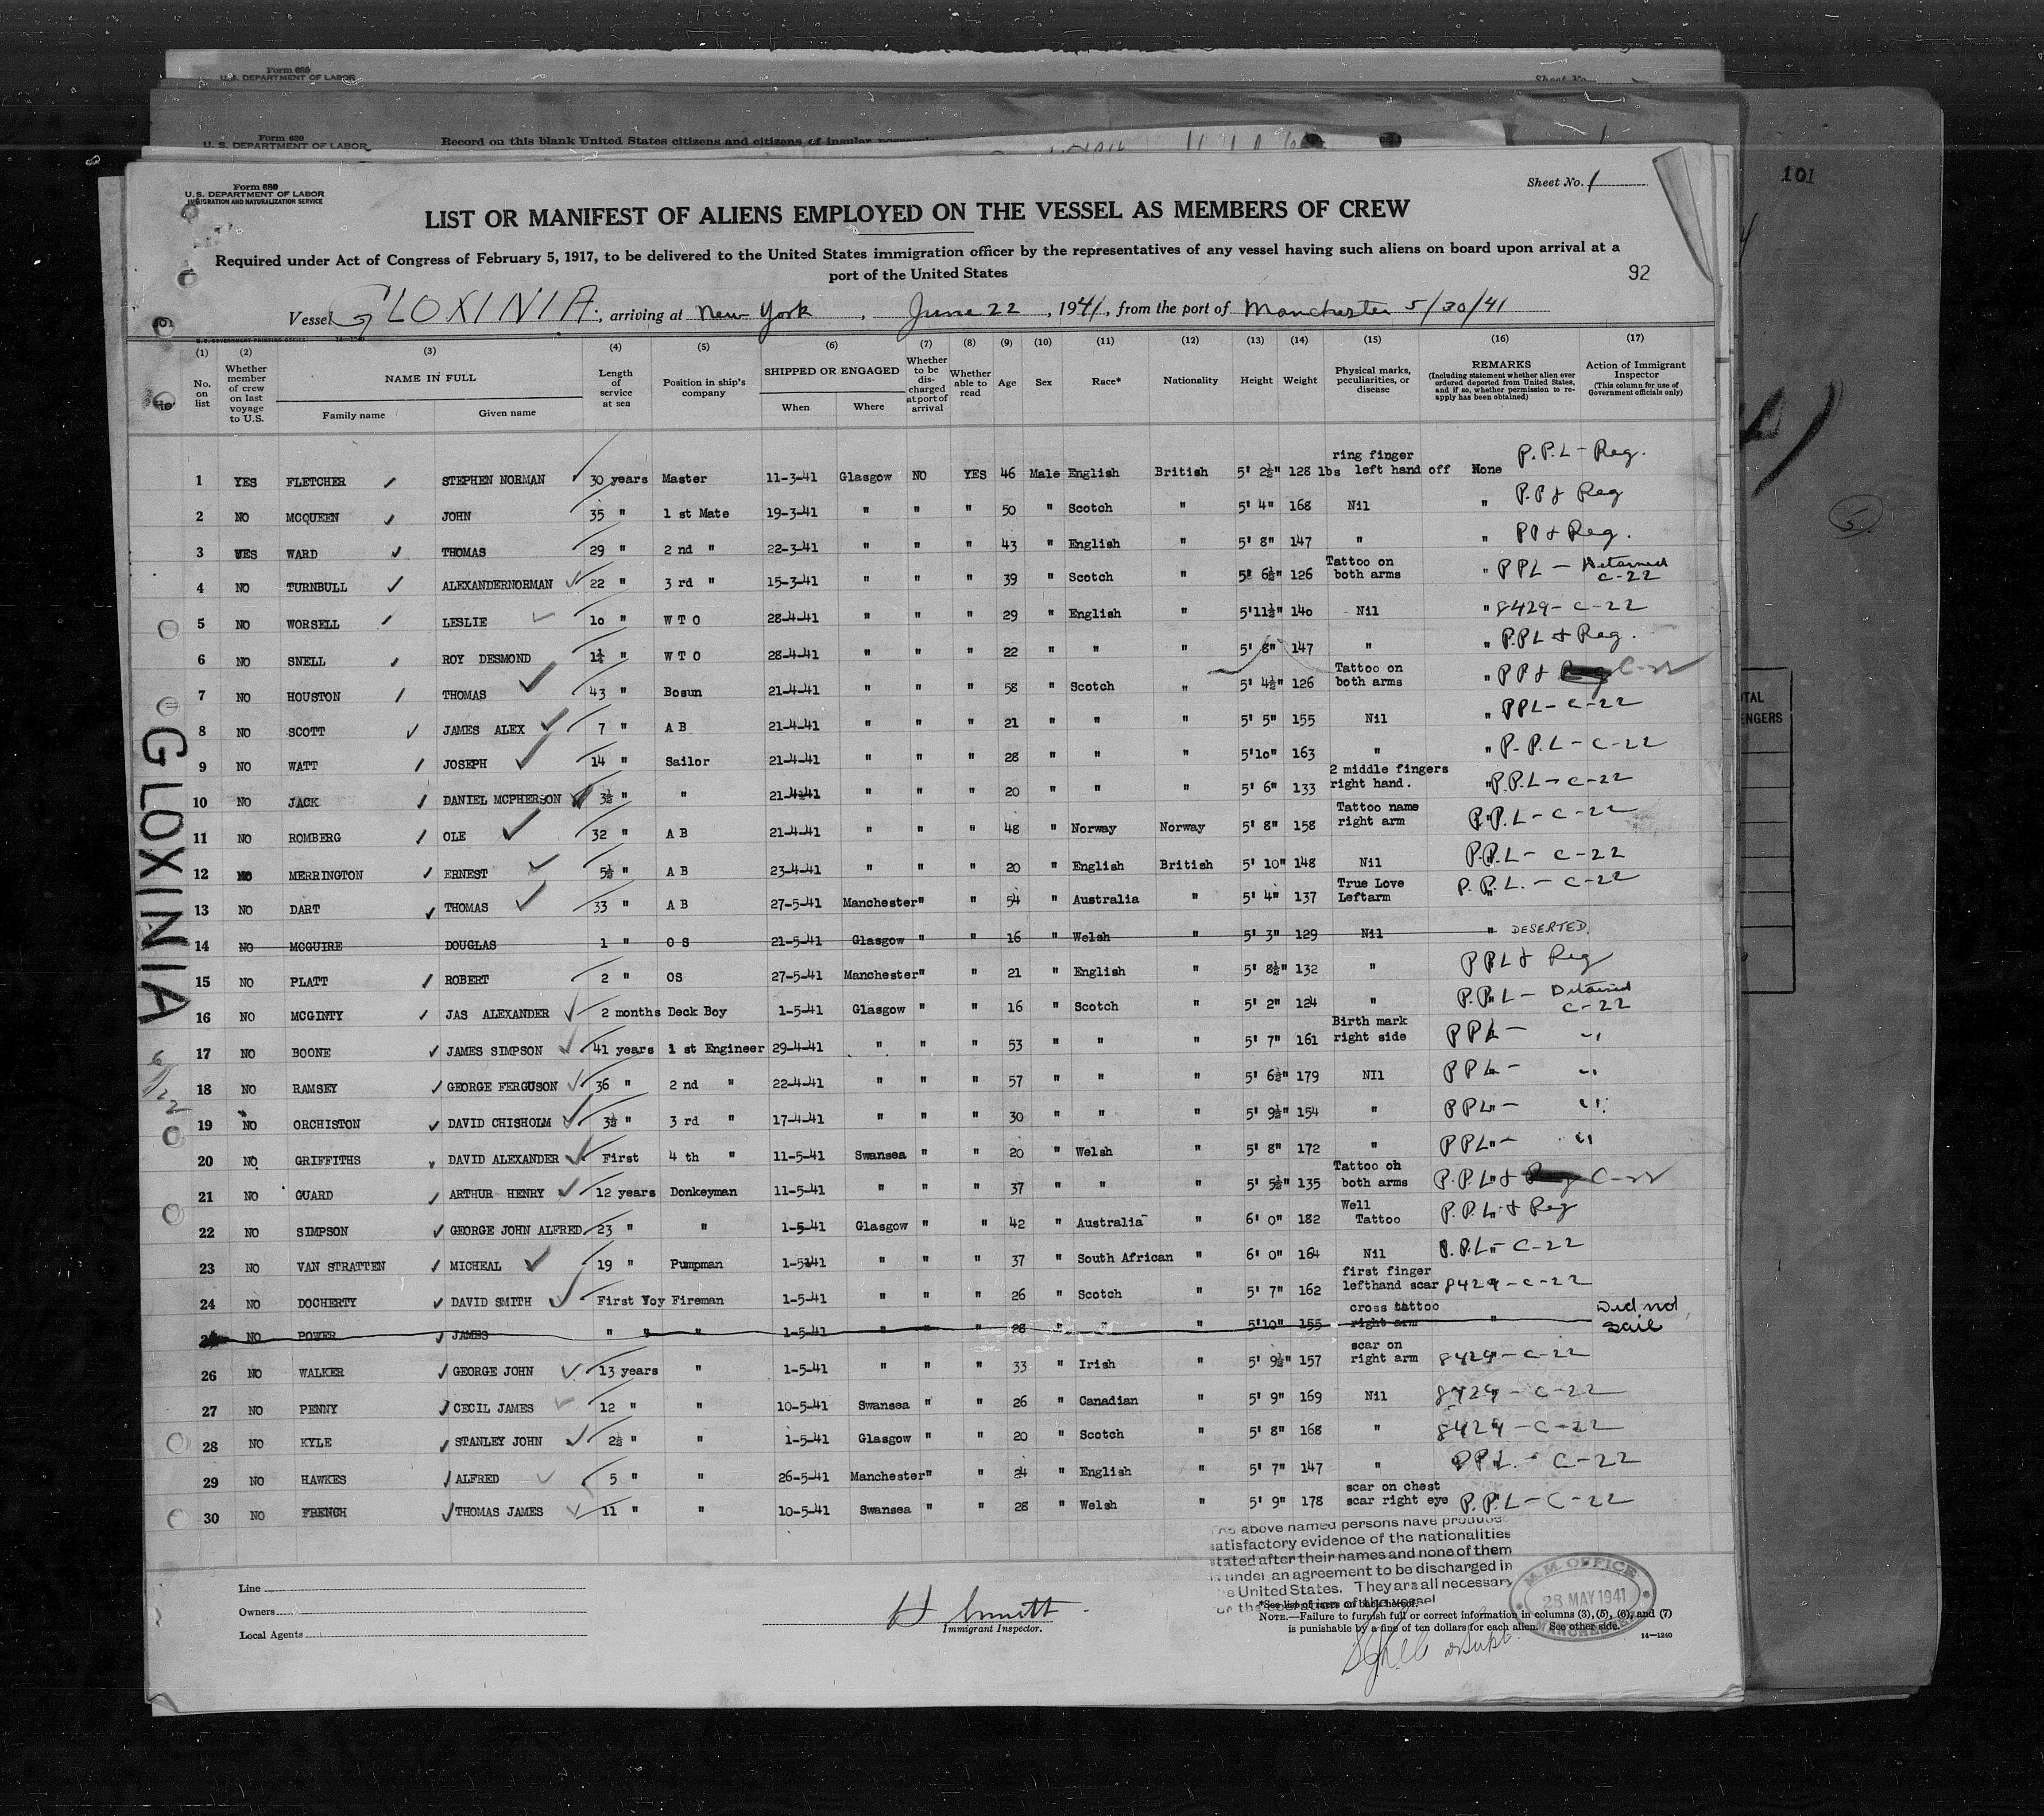 Form 680
U. S. DEPARTMENT OF LABOR
Sheet No.
Form 680
U. S. DEPARTMENT OF LABOR
Record on this blank United States citizens and citizens of insular
101
Form 680
U. S. DEPARTMENT OF LABOR
IMMIGRATION AND NATURALIZATION SERVICE
Sheet No. 1
LIST OR MANIFEST OF ALIENS EMPLOYED ON THE VESSEL AS MEMBERS OF CREW
Required under Act of Congress of February 5, 1917, to be delivered to the United States immigration officer by the representatives of any vessel having such aliens on board upon arrival at a
port of the United States
92
Vessel GLOXINIA, arriving at New York, June 22, 1941, from the port of Manchester 5/30/41
U. S. GOVERNMENT PRINTING OFFICE 14-1240
(1) (2) (3) (4) (5) (6) (7) (8) (9) (10) (11) (12) (13) (14) (15) (16) (17)
No. on list
Whether member of crew on last voyage to U.S.
NAME IN FULL
Family name
Given name
Length of service at sea
Position in ship's company
SHIPPED OR ENGAGED
When
Where
Whether to be dis-charged at port of arrival
Whether able to read
Age
Sex
Race*
Nationality
Height
Weight
Physical marks, peculiarities, or disease
REMARKS
(Including statement whether alien ever ordered deported from United States, and if so, whether permission to re-apply has been obtained)
Action of Immigrant Inspector
(This column for use of Government officials only)
1 YES FLETCHER STEPHEN NORMAN 30 years Master 11-3-41 Glasgow NO YES 46 Male English British 5' 2½" 128 lbs ring finger left hand off None P.P.L - Reg.
2 NO MCQUEEN JOHN 35 " 1 st Mate 19-3-41 " " " 50 " Scotch " 5' 4" 168 Nil " P.P & Reg
3 YES WARD THOMAS 29 " 2 nd " 22-3-41 " " " 43 " English " 5' 8" 147 " " PP & Reg.
4 NO TURNBULL ALEXANDERNORMAN 22 " 3 rd " 15-3-41 " " " 39 " Scotch " 5' 6½" 126 Tattoo on both arms " PPL - Detained C-22
5 NO WORSELL LESLIE 10 " W T O 28-4-41 " " " 29 " English " 5'11½" 140 Nil " 8429 - C-22
6 NO SNELL ROY DESMOND 1¼ " W T O 28-4-41 " " " 22 " " " 5' 8" 147 " " P.PL & Reg.
7 NO HOUSTON THOMAS 43 " Bosun 21-4-41 " " " 58 " Scotch " 5' 4½" 126 Tattoo on both arms " PP & Reg C-22
8 NO SCOTT JAMES ALEX 7 " A B 21-4-41 " " " 21 " " " 5' 5" 155 Nil " PPL - C-22
9 NO WATT JOSEPH 14 " Sailor 21-4-41 " " " 28 " " " 5'10" 163 " " P.P.L - C-22
10 NO JACK DANIEL MCPHERSON 3½ " " 21-4-41 " " " 20 " " " 5' 6" 133 2 middle fingers right hand. " P.P.L - C-22
11 NO ROMBERG OLE 32 " A B 21-4-41 " " " 48 " Norway Norway 5' 8" 158 Tattoo name right arm " P.P.L - C-22
12 NO MERRINGTON ERNEST 5½ " A B 23-4-41 " " " 20 " English British 5' 10" 148 Nil " P.P.L - C-22
13 NO DART THOMAS 33 " A B 27-5-41 Manchester " " 54 " Australia " 5' 4" 137 True Love Leftarm " P.P.L. - C-22
14 NO MCGUIRE DOUGLAS 1 " O S 21-5-41 Glasgow " " 16 " Welsh " 5' 3" 129 Nil " DESERTED.
15 NO PLATT ROBERT 2 " OS 27-5-41 Manchester " " 21 " English " 5' 8½" 132 " PPL & Reg
16 NO MCGINTY JAS ALEXANDER 2 months Deck Boy 1-5-41 Glasgow " " 16 " Scotch " 5' 2" 124 " " P.P.L - Detained C-22
17 NO BOONE JAMES SIMPSON 41 years 1 st Engineer 29-4-41 " " " 53 " " " 5' 7" 161 Birth mark right side " PPL - "
18 NO RAMSEY GEORGE FERGUSON 36 " 2 nd " 22-4-41 " " " 57 " " " 5' 6½" 179 NIl " PPL - "
19 NO ORCHISTON DAVID CHISHOLM 3½ " 3 rd " 17-4-41 " " " 30 " " " 5' 9½" 154 " " PPL - "
20 NO GRIFFITHS DAVID ALEXANDER First 4 th " 11-5-41 Swansea " " 20 " Welsh " 5' 8" 172 " " PPL - "
21 NO GUARD ARTHUR HENRY 12 years Donkeyman 11-5-41 " " " 37 " " " 5' 5½" 135 Tattoo on both arms " P.P.L & Reg C-22
22 NO SIMPSON GEORGE JOHN ALFRED 23 " " 1-5-41 Glasgow " " 42 " Australia " 6' 0" 182 Well Tattoo " P.P.L & Reg
23 NO VAN STRATTEN MICHEAL 19 " Pumpman 1-5-41 " " " 37 " South African " 6' 0" 164 Nil " P.P.L - C-22
24 NO DOCHERTY DAVID SMITH First Voy Fireman 1-5-41 " " " 26 " Scotch " 5' 7" 162 first finger lefthand scar 8429 - C-22
25 NO POWER JAMES " " " 1-5-41 " " " 28 " " " 5'10" 155 cross tattoo right arm " Did not sail
26 NO WALKER GEORGE JOHN 13 years " 1-5-41 " " " 33 " Irish " 5' 9½" 157 scar on right arm " 8429 - C-22
27 NO PENNY CECIL JAMES 12 " " 10-5-41 Swansea " " 26 " Canadian " 5' 9" 169 Nil " 8429 - C-22
28 NO KYLE STANLEY JOHN 2½ " " 1-5-41 Glasgow " " 20 " Scotch " 5' 8" 168 " " 8429 - C-22
29 NO HAWKES ALFRED 5 " " 26-5-41 Manchester " " 24 " English " 5' 7" 147 " " PPL - C-22
30 NO FRENCH THOMAS JAMES 11 " " 10-5-41 Swansea " " 28 " Welsh " 5' 9" 178 scar on chest scar right eye " P.P.L - C-22
GLOXINIA
6/22
above named persons have produce
satisfactory evidence of the nationalities
stated after their names and none of them
is under an agreement to be discharged in
the United States. They are all necessary
for the operation of the vessel
M.M. OFFICE
28 MAY 1941
MANCHESTER
Line
Owners
Local Agents
Immigrant Inspector.
*See list of races on back hereof.
NOTE.—Failure to furnish full or correct information in columns (3), (5), (6), and (7)
is punishable by a fine of ten dollars for each alien. See other side.
14—1240